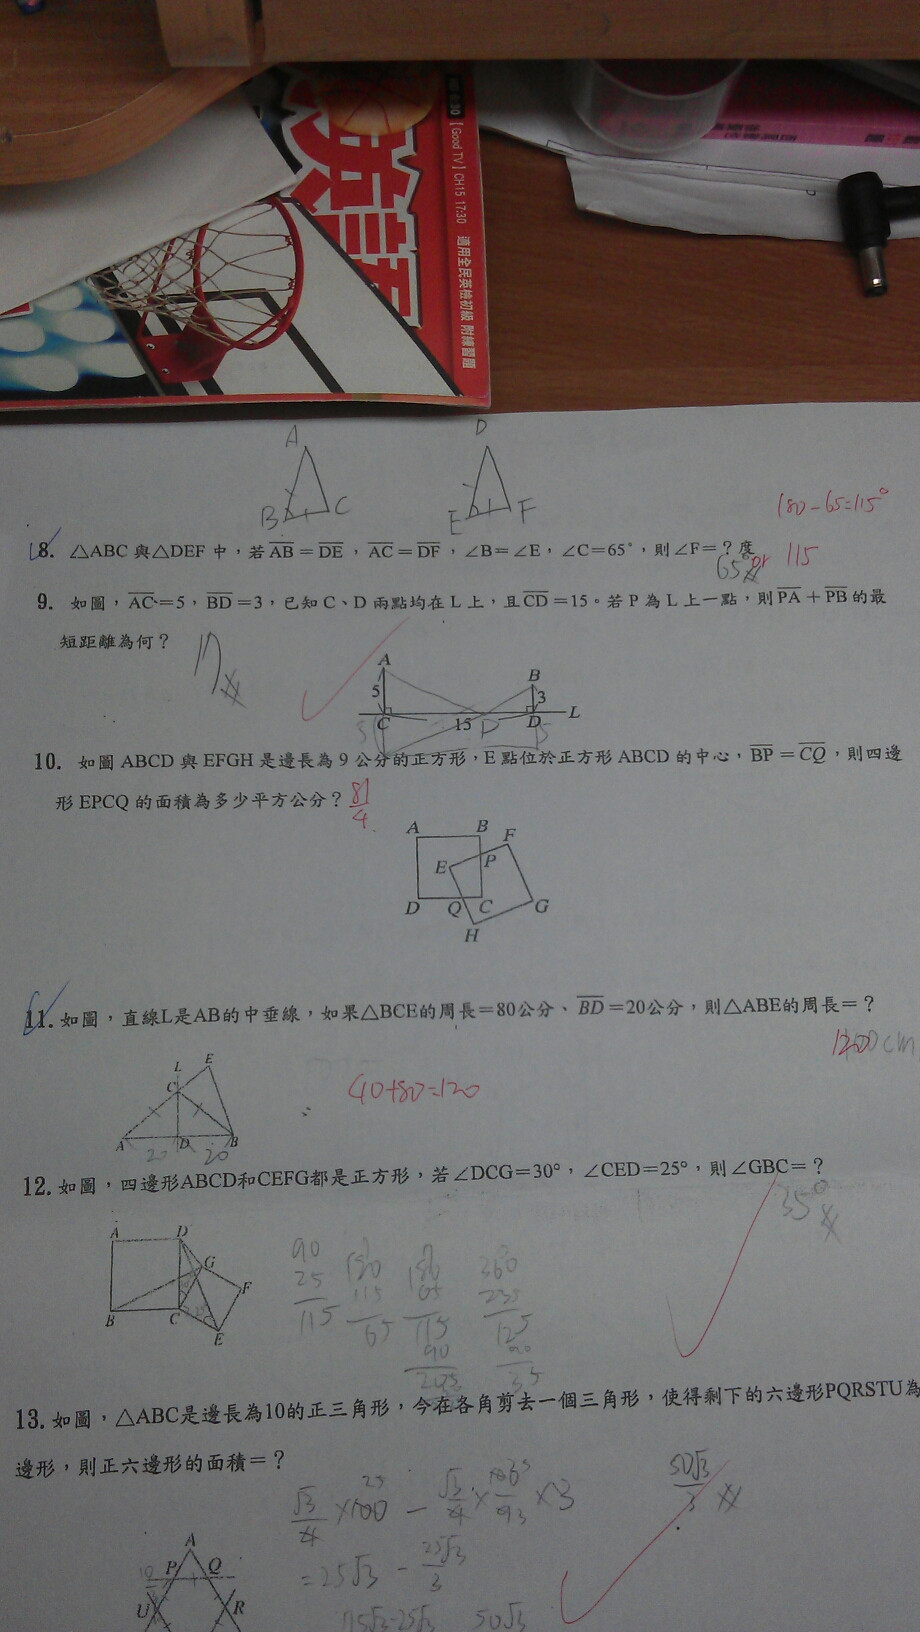 英語
【Good TV】CH15 17:30 適用全民英檢初級 附練習題
A D
B C E F
180-65=115°
8. △ABC 與△DEF 中，若 AB = DE，AC = DF，∠B=∠E，∠C=65°，則∠F=？度
65° or 115
9. 如圖，AC=5，BD=3，已知 C、D 兩點均在 L 上，且CD=15。若 P 為 L 上一點，則PA+PB的最
短距離為何？ 17
A
B
5 3
C 15 P D L
10. 如圖 ABCD 與 EFGH 是邊長為 9 公分的正方形，E 點位於正方形 ABCD 的中心，BP=CQ，則四邊
形 EPCQ 的面積為多少平方公分？ 81/4
A B F
E P
D Q C G
H
11. 如圖，直線L是AB的中垂線，如果△BCE的周長=80公分、BD=20公分，則△ABE的周長=？
120 cm
40+80=120
L E
C
A D B
20 20
12. 如圖，四邊形ABCD和CEFG都是正方形，若∠DCG=30°，∠CED=25°，則∠GBC=？
35°
A D
G
F
B C
E
90 180 180 360
25 115 65 235
115 65 115 125
90 90
205 35
13. 如圖，△ABC是邊長為10的正三角形，今在各角剪去一個三角形，使得剩下的六邊形PQRSTU為
邊形，則正六邊形的面積=？
√3/4 ×100 - √3/4 × 100/9 ×3
50√3/3
=25√3 - 25√3/3
75√3-25√3 50√3
A
P Q
U R